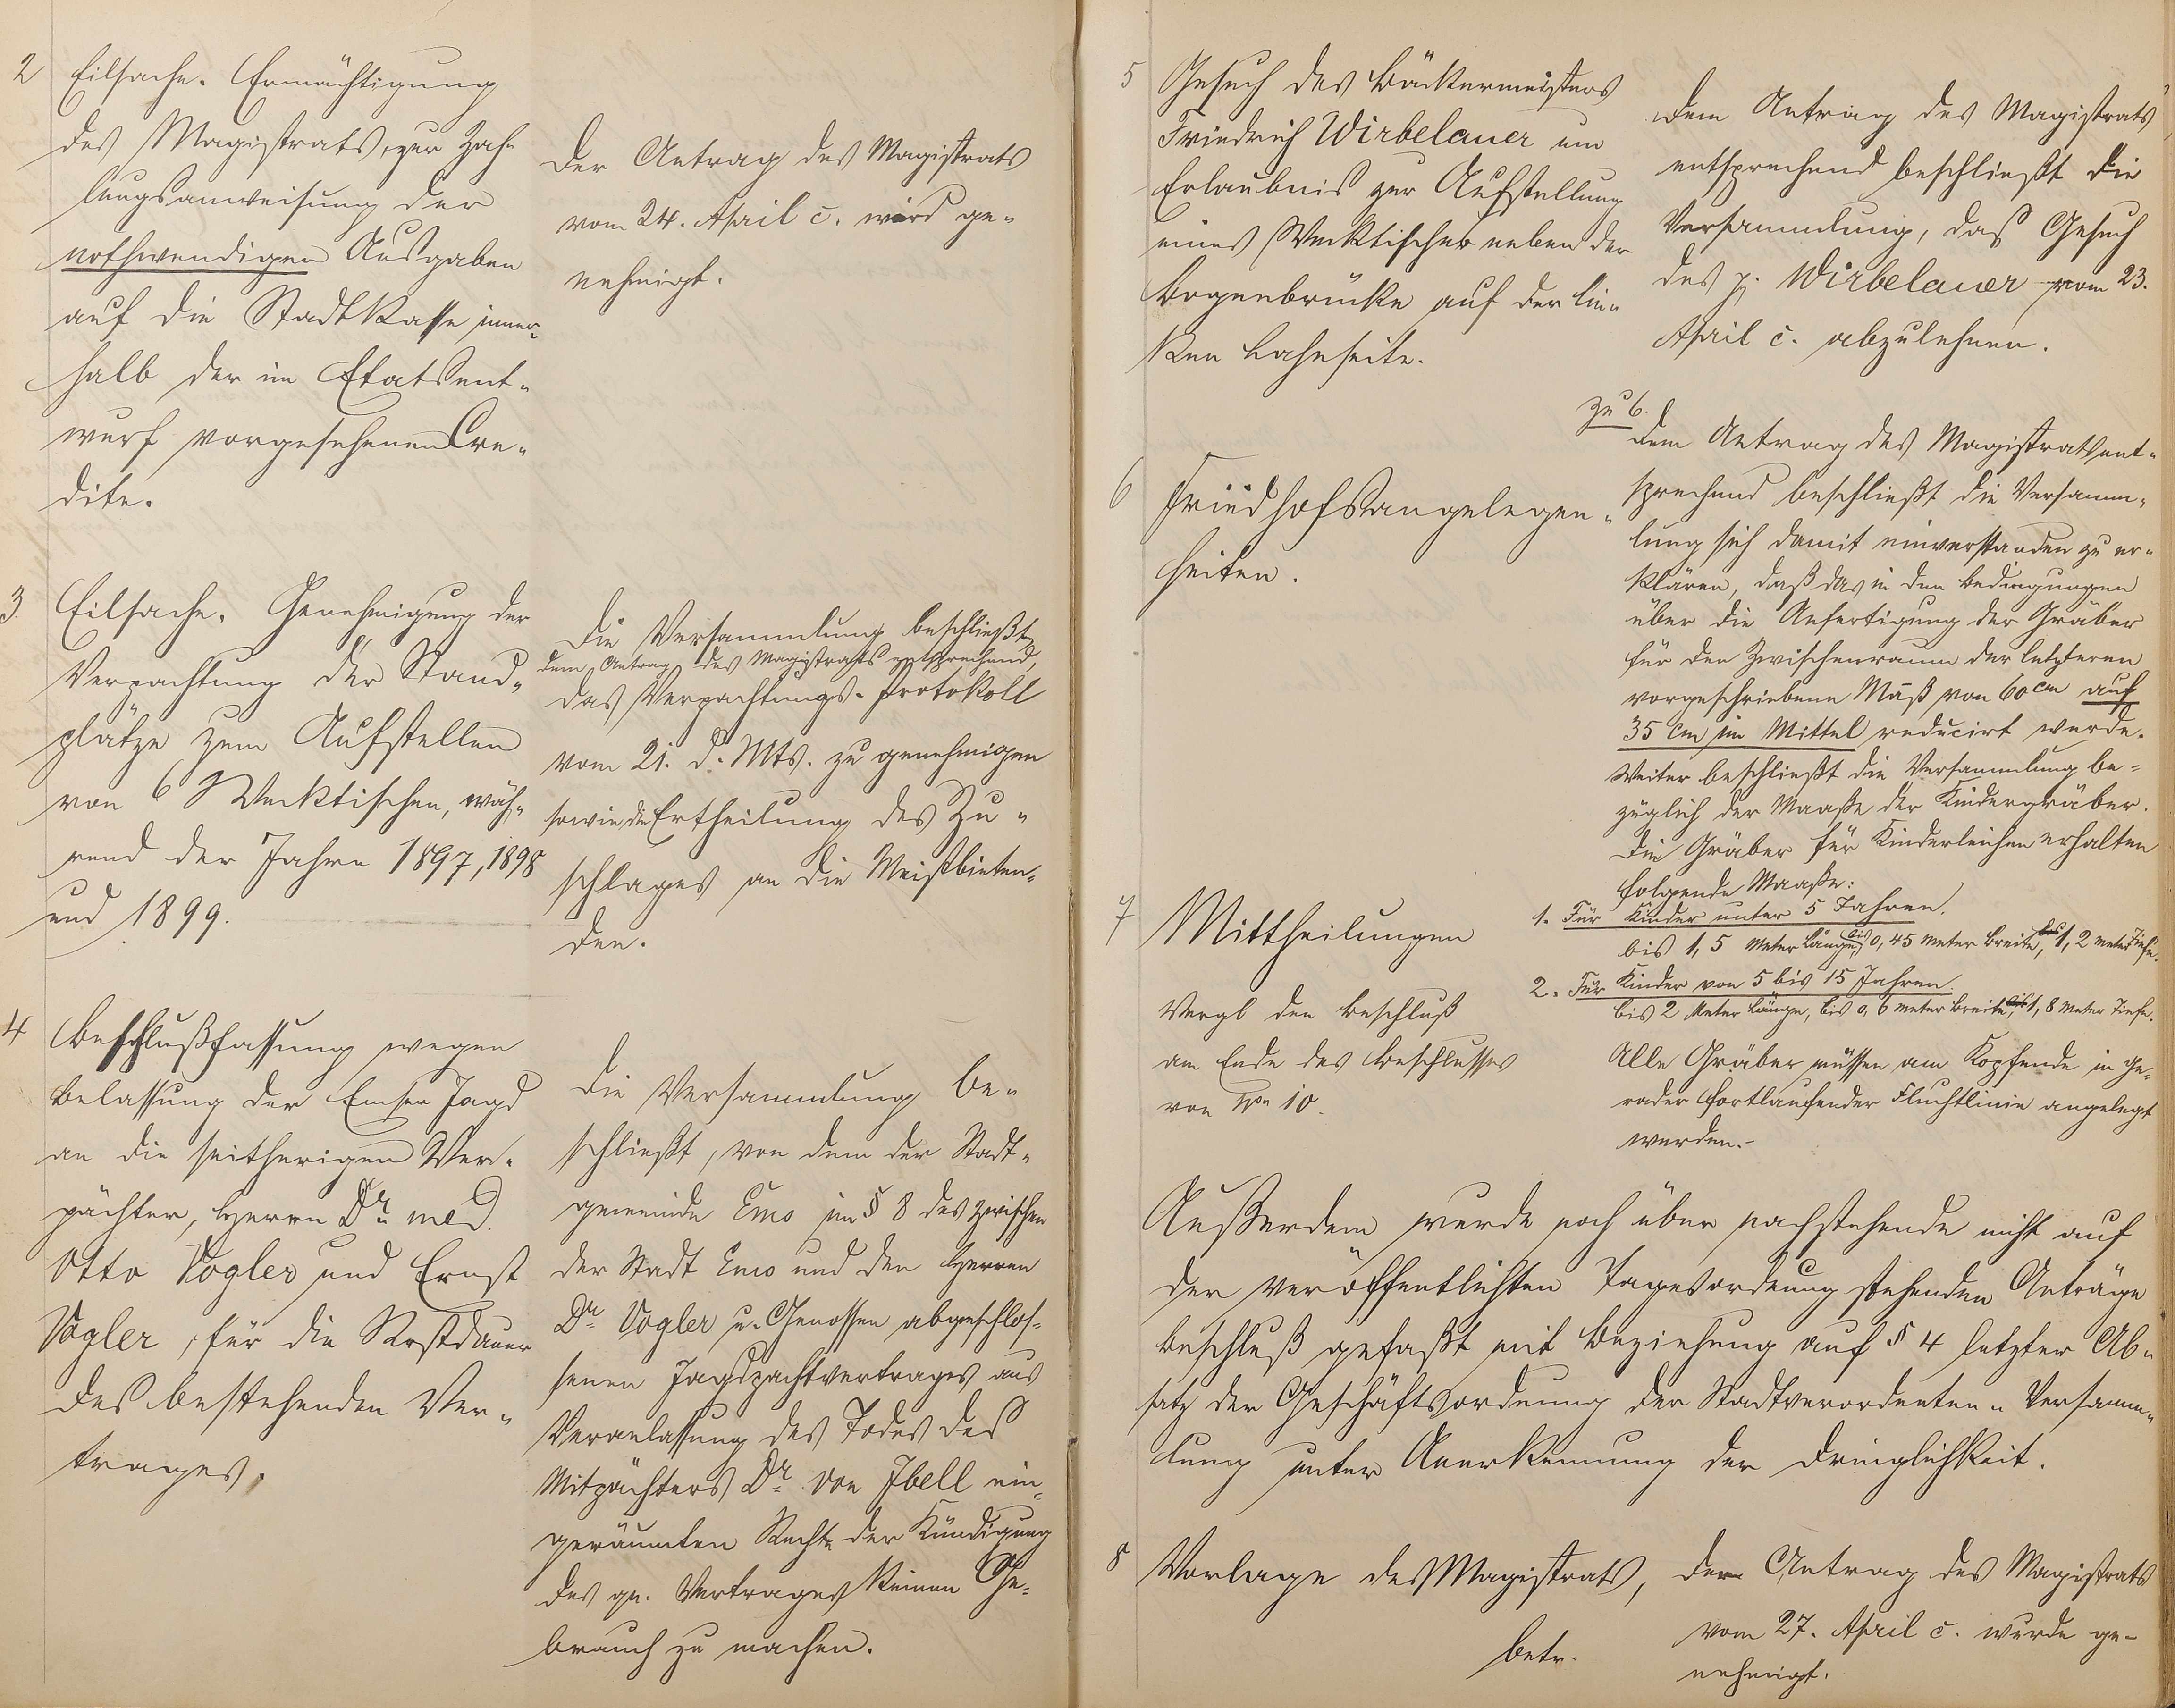 2 Eilsache. Ermächtigung
des Magistrats, zur Zah-
lungsanweisung der
nothwendigen Ausgaben
auf die Stadtkasse inner-
halb der im Etatsent-
wurf vorgesehenen Cre-
dite.
Der Antrag des Magistrats
vom 24. April c. wird ge-
nehmigt.
3. Eilsache. Genehmigung der
Verpachtung der Stand-
plätze zum Aufstellen
von 6 Wecktischen, wäh-
rend der Jahre 1897, 1898
und 1899.
Die Versammlung beschließt,
dem Antrag des Magistrats entsprechend,
das Verpachtungs-Protokoll
vom 21. d. Mts. zu genehmigen
sowie die Ertheilung des Zu-
schlages an die Meistbieten-
den.
4 Beschlußfassung wegen
Belassung der Emser Jagd
an die seitherigen Ver-
pächter, Herrn Dr. med.
Otto Vogler und Ernst
Vogler, für die Restdauer
des bestehenden Ver-
trages.
Die Versammlung be-
schließt, von dem der Stadt-
gemeinde Ems im § 8 des zwischen
der Stadt Ems und den Herren
Dr. Vogler u. Genossen abgeschlos-
senen Jagdpachtvertrages aus
Veranlassung des Todes des
Mitpächters Dr. von Ibell ein-
geräumten Rechte der Kündigung
des gn. Vertrages keinen Ge-
brauch zu machen.
5 Gesuch des Bäckermeisters
Friedrich Wirbelauer um
Erlaubniß zur Aufstellung
eines Wecktisches neben der
Bogenbrücke auf der lin-
ken Lahnseite.
Dem Antrag des Magistrats
entsprechend beschließt die
Versammlung, das Gesuch
des p. Wirbelauer vom 23.
April c. abzulehnen.
6 Friedhofsangelegen-
heiten.
zu 6.
Dem Antrag des Magistrats ent-
sprechend beschließt die Versamm-
lung sich damit einverstanden zu er-
klären, daß das in den Bedingungen
über die Anfertigung der Gräber
für den Zwischenraum der letzteren
vorgeschriebene Maß von 60 cm auf
35 cm im Mittel reducirt werde.
Weiter beschließt die Versammlung be-
züglich der Maaße der Kindergräber.
Die Gräber für Kinderleichen erhalten
folgende Maaße:
1. Für Kinder unter 5 Jahren.
bis 1,5 Meter Länge, bis 0,45 Meter Breite, bis 1,2 Meter Tiefe.
2. Für Kinder von 5 bis 15 Jahren.
bis 2 Meter Länge, bis 0,6 Meter Breite, bis 1,8 Meter Tiefe.
Alle Gräber müssen am Kopfende in ge-
rader fortlaufender Fluchtlinie angelegt
werden.-
7 Mittheilungen
Vergl den Beschluß
am Ende des Beschlusses
von No 10.
Außerdem wurde noch über nachstehende nicht auf
der veröffentlichten Tagesordnung stehenden Anträge
Beschluß gefaßt mit Beziehung auf § 4 letzter Ab-
satz der Geschäftsordnung der Stadtverordneten-Versamm-
lung unter Anerkennung der Dringlichkeit.
8 Vorlage des Magistrats,
betr.
Der Antrag des Magistrats
vom 27. April c. wurde ge-
nehmigt.